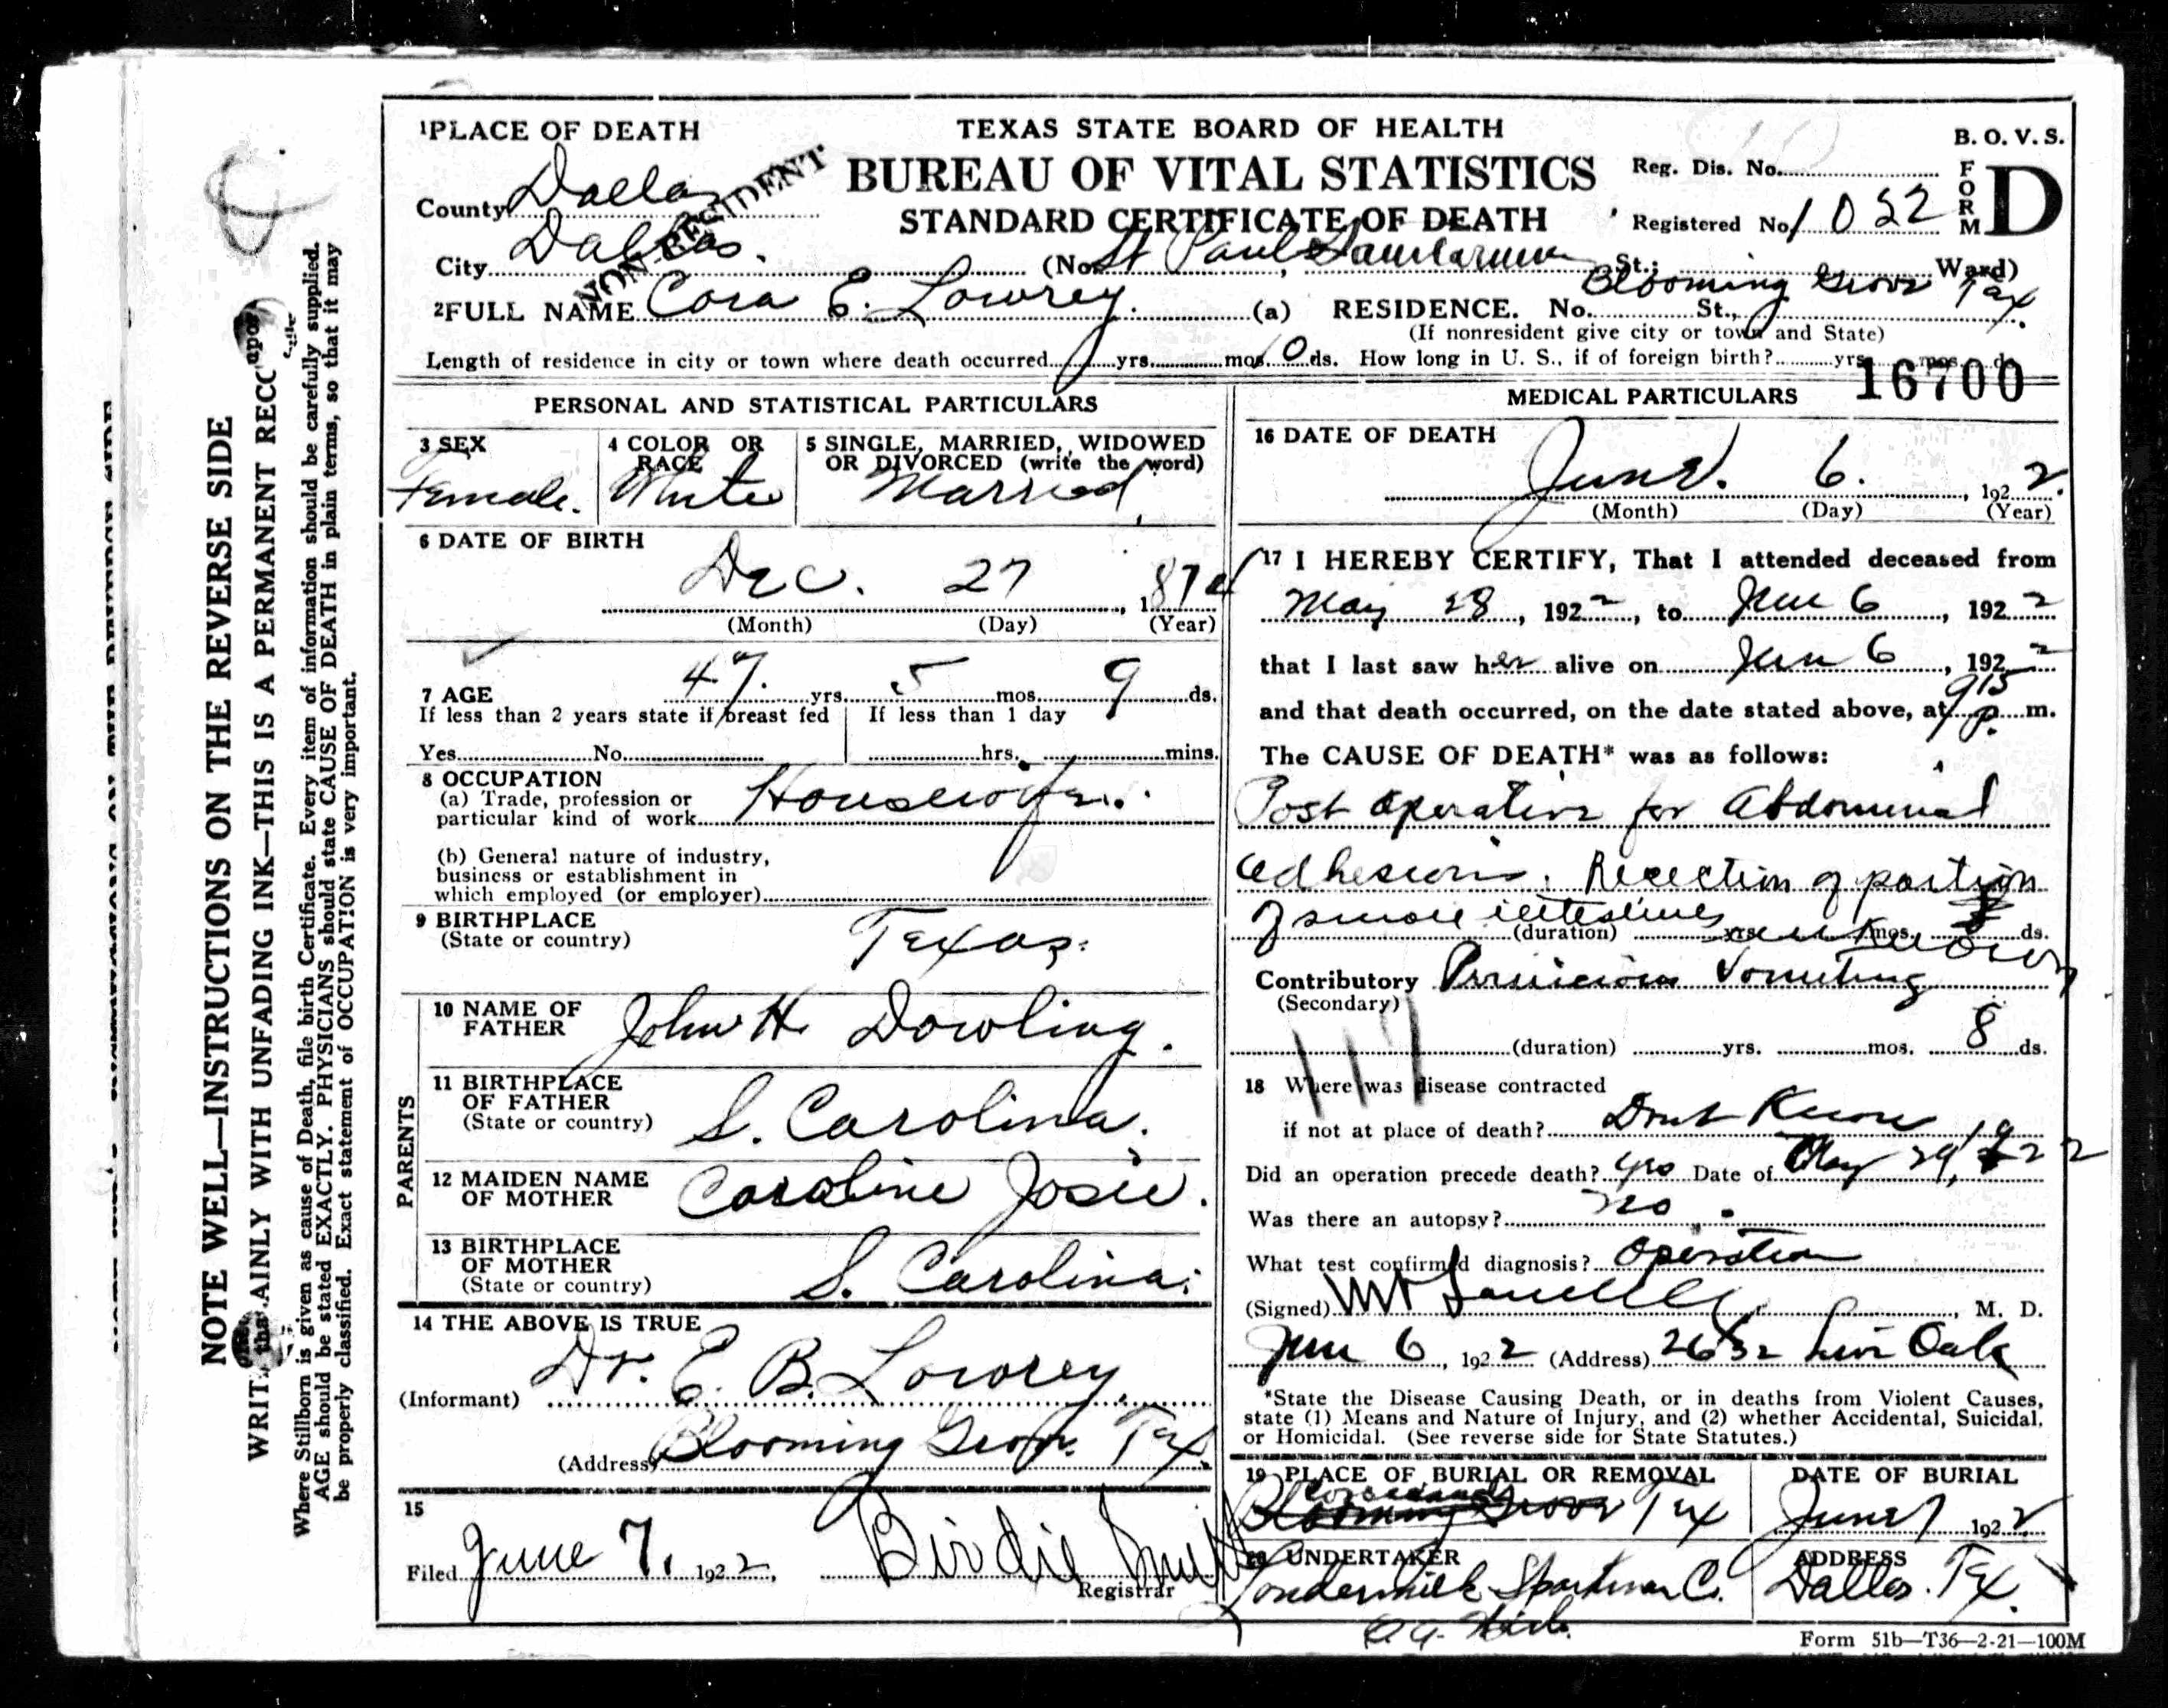 1 PLACE OF DEATH
TEXAS STATE BOARD OF HEALTH
B. O. V. S.
BUREAU OF VITAL STATISTICS
STANDARD CERTIFICATE OF DEATH
Reg. Dis. No.
FORM D
Registered No. 1052
County Dallas
NON RESIDENT
City Dallas. (No. St Paul Sanitarium St.; Ward)
2 FULL NAME Cora E. Lowrey. (a) RESIDENCE. No. St., Blooming Grove Tex.
(If nonresident give city or town and State)
Length of residence in city or town where death occurred yrs. mos. 10 ds. How long in U. S., if of foreign birth? yrs. mos. ds.
16700
PERSONAL AND STATISTICAL PARTICULARS
3 SEX
Female.
4 COLOR OR RACE
White
5 SINGLE, MARRIED, WIDOWED
OR DIVORCED (write the word)
Married
6 DATE OF BIRTH
Dec. 27, 1874
(Month) (Day) (Year)
7 AGE 47. yrs. 5 mos. 9 ds.
If less than 2 years state if breast fed If less than 1 day
Yes No hrs. mins.
8 OCCUPATION
(a) Trade, profession or
particular kind of work Housewife.
(b) General nature of industry,
business or establishment in
which employed (or employer)
9 BIRTHPLACE
(State or country) Texas.
PARENTS
10 NAME OF
FATHER John H. Dowling.
11 BIRTHPLACE
OF FATHER
(State or country) S. Carolina.
12 MAIDEN NAME
OF MOTHER Caroline Josie.
13 BIRTHPLACE
OF MOTHER
(State or country) S. Carolina.
14 THE ABOVE IS TRUE
(Informant) Dr. E. B. Lowrey.
(Address) Blooming Grove. Tex.
15
Filed June 7, 1922, Birdie Smith
Registrar
MEDICAL PARTICULARS
16 DATE OF DEATH
June. 6. , 1922.
(Month) (Day) (Year)
17 I HEREBY CERTIFY, That I attended deceased from
May 28, 1922, to June 6, 1922
that I last saw her alive on June 6, 1922
and that death occurred, on the date stated above, at 9 15 p. m.
The CAUSE OF DEATH* was as follows:
Post Operative for Abdominal
adhesions. Resection of portion
of small intestines
(duration) yrs. mos. ds.
unknown
Contributory Pernicious Vomiting
(Secondary)
(duration) yrs. mos. 8 ds.
18 Where was disease contracted
if not at place of death? Dont Know
Did an operation precede death? yes Date of May 29, 1922
Was there an autopsy? no.
What test confirmed diagnosis? Operation
(Signed) , M. D.
June 6, 1922 (Address) 2632 Live Oak
*State the Disease Causing Death, or in deaths from Violent Causes,
state (1) Means and Nature of Injury, and (2) whether Accidental, Suicidal,
or Homicidal. (See reverse side for State Statutes.)
19 PLACE OF BURIAL OR REMOVAL
Corsicana
Blooming Grove Tex
DATE OF BURIAL
June 7 1922
20 UNDERTAKER
Loudermilk Sparkman Co.
ADDRESS
Dallas. Tex.
Form 51b—T36—2-21—100M
NOTE WELL—INSTRUCTIONS ON THE REVERSE SIDE
WRITE PLAINLY WITH UNFADING INK—THIS IS A PERMANENT RECO
Where Stillborn is given as cause of Death, file birth Certificate. Every item of information should be carefully supplied.
AGE should be stated EXACTLY. PHYSICIANS should state CAUSE OF DEATH in plain terms, so that it may
be properly classified. Exact statement of OCCUPATION is very important.